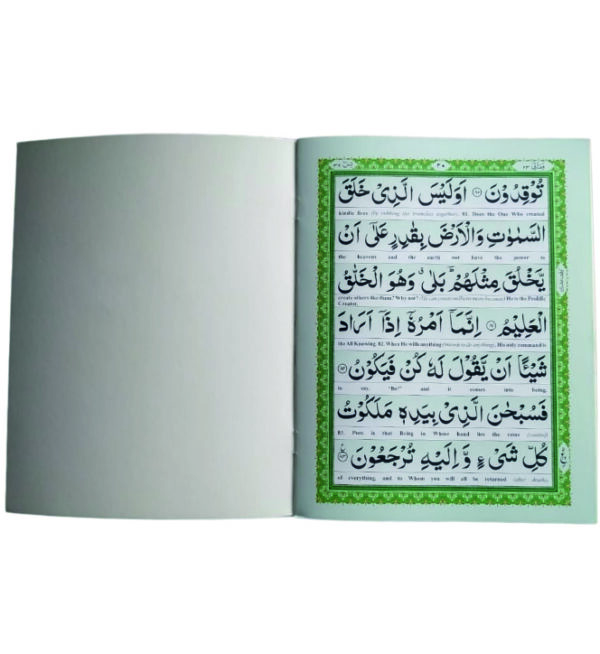 ومالی ۲۳ ۲۰ یٰسٓ ۳۶
تُوْقِدُوْنَ ۝ اَوَلَیْسَ الَّذِیْ خَلَقَ
kindle fires (by rubbing the branches together). 81. Does the One Who created
السَّمٰوٰتِ وَالْاَرْضَ بِقٰدِرٍ عَلٰۤی اَنْ
the heavens and the earth not have the power to
یَّخْلُقَ مِثْلَهُمْ ؕ بَلٰی ۗ وَهُوَ الْخَلّٰقُ
create others like them? Why not? He is the Prolific
Creator,
الْعَلِیْمُ ۝ اِنَّمَاۤ اَمْرُهٗۤ اِذَاۤ اَرَادَ
the All Knowing. 82. When He wills anything (intends to do anything), His only command is
شَیْـًٔا اَنْ یَّقُوْلَ لَهٗ كُنْ فَیَكُوْنُ ۝
to say, "Be!" and it comes into being.
فَسُبْحٰنَ الَّذِیْ بِیَدِهٖ مَلَكُوْتُ
83. Pure is that Being in Whose hand lies the reins (control)
كُلِّ شَیْءٍ وَّاِلَیْهِ تُرْجَعُوْنَ ۝
of everything, and to Whom you will all be returned (after death).